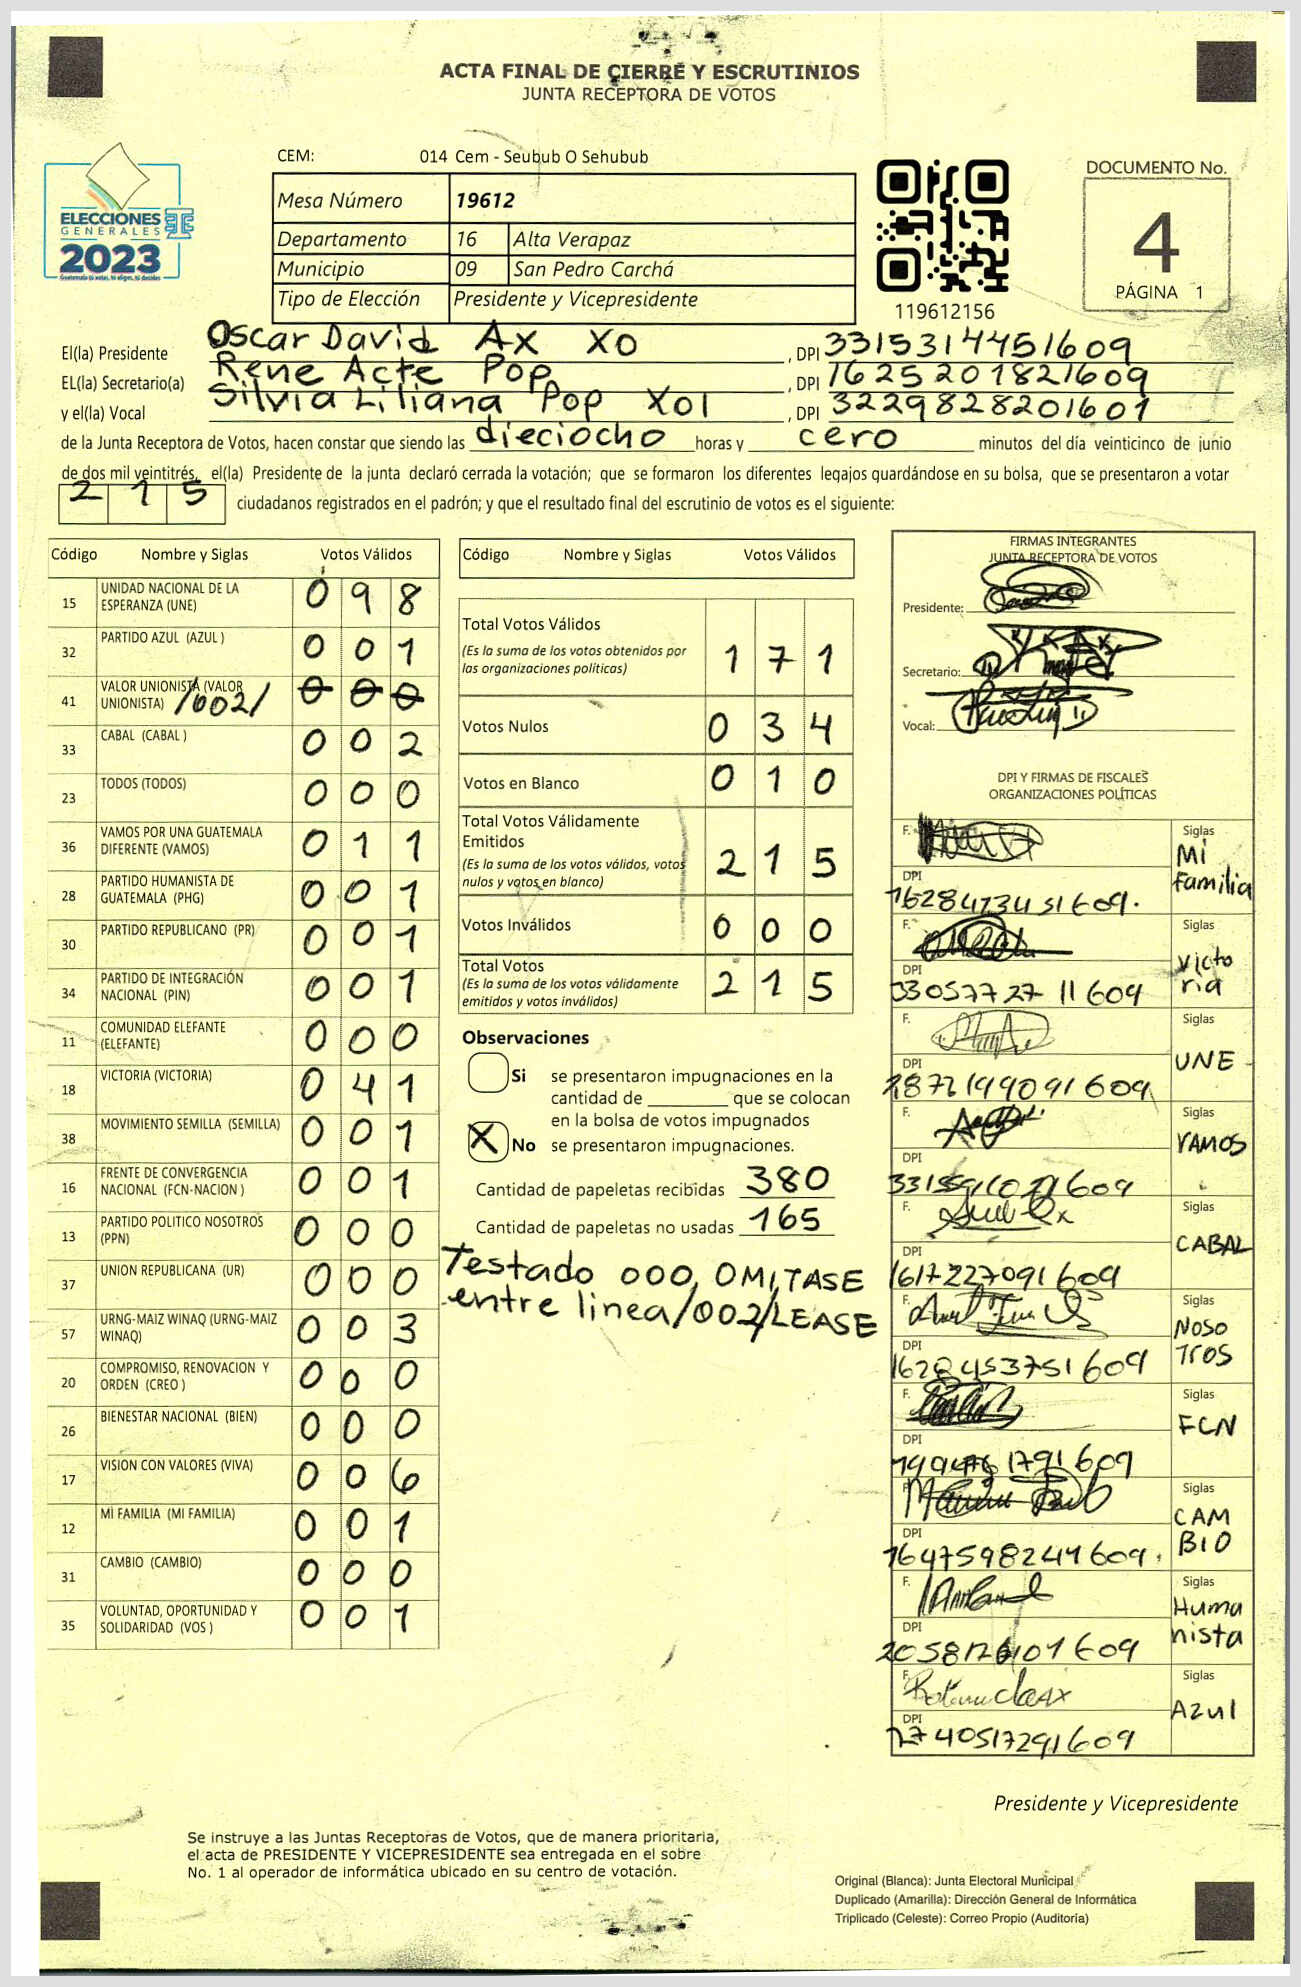 ACTA FINAL DE CIERRE Y ESCRUTINIOS
JUNTA RECEPTORA DE VOTOS
CEM: 014 Cem - Seubub O Sehubub
ELECCIONES
GENERALES
2023
Mesa Número 19612
Departamento 16 Alta Verapaz
Municipio 09 San Pedro Carchá
Tipo de Elección Presidente y Vicepresidente
119612156
DOCUMENTO No.
4
PÁGINA 1
El(la) Presidente Oscar David Ax Xo, DPI 3315314451609
EL(la) Secretario(a) Rene Acte Pop, DPI 1625201821609
y el(la) Vocal Silvia Liliana Pop Xol, DPI 3229828201601
de la Junta Receptora de Votos, hacen constar que siendo las dieciocho horas y cero minutos del día veinticinco de junio
de dos mil veintitrés, el(la) Presidente de la junta declaró cerrada la votación; que se formaron los diferentes legajos guardándose en su bolsa, que se presentaron a votar
215 ciudadanos registrados en el padrón; y que el resultado final del escrutinio de votos es el siguiente:
Código Nombre y Siglas Votos Válidos
15 UNIDAD NACIONAL DE LA ESPERANZA (UNE) 098
32 PARTIDO AZUL (AZUL ) 001
41 VALOR UNIONISTA (VALOR UNIONISTA) /002/ 000
33 CABAL (CABAL ) 002
23 TODOS (TODOS) 000
36 VAMOS POR UNA GUATEMALA DIFERENTE (VAMOS) 011
28 PARTIDO HUMANISTA DE GUATEMALA (PHG) 001
30 PARTIDO REPUBLICANO (PR) 001
34 PARTIDO DE INTEGRACIÓN NACIONAL (PIN) 001
11 COMUNIDAD ELEFANTE (ELEFANTE) 000
18 VICTORIA (VICTORIA) 041
38 MOVIMIENTO SEMILLA (SEMILLA) 001
16 FRENTE DE CONVERGENCIA NACIONAL (FCN-NACION ) 001
13 PARTIDO POLITICO NOSOTROS (PPN) 000
37 UNION REPUBLICANA (UR) 000
57 URNG-MAIZ WINAQ (URNG-MAIZ WINAQ) 003
20 COMPROMISO, RENOVACION Y ORDEN (CREO ) 000
26 BIENESTAR NACIONAL (BIEN) 000
17 VISION CON VALORES (VIVA) 006
12 MI FAMILIA (MI FAMILIA) 001
31 CAMBIO (CAMBIO) 000
35 VOLUNTAD, OPORTUNIDAD Y SOLIDARIDAD (VOS ) 001
Código Nombre y Siglas Votos Válidos
Total Votos Válidos
(Es la suma de los votos obtenidos por
las organizaciones políticas) 171
Votos Nulos 034
Votos en Blanco 010
Total Votos Válidamente
Emitidos
(Es la suma de los votos válidos, votos
nulos y votos en blanco) 215
Votos Inválidos 000
Total Votos
(Es la suma de los votos válidamente
emitidos y votos inválidos) 215
Observaciones
Si se presentaron impugnaciones en la
cantidad de que se colocan
en la bolsa de votos impugnados
X No se presentaron impugnaciones.
Cantidad de papeletas recibidas 380
Cantidad de papeletas no usadas 165
Testado 000, OMITASE
entre linea/002/LEASE
FIRMAS INTEGRANTES
JUNTA RECEPTORA DE VOTOS
Presidente:
Secretario:
Vocal:
DPI Y FIRMAS DE FISCALES
ORGANIZACIONES POLÍTICAS
F. Siglas
Mi
Familia
DPI
F. Siglas
Victo
ria
DPI
3305772711609
F. Siglas
UNE
DPI
2872199091609
F. Siglas
VAMOS
DPI
F. Siglas
CABAL
DPI
1617227091609
F. Siglas
Noso
Tros
DPI
1628453751609
F. Siglas
FCN
DPI
F. Siglas
CAM
BIO
DPI
1647598241609
F. Siglas
Huma
nista
DPI
F. Siglas
Azul
DPI
2740517291609
Presidente y Vicepresidente
Se instruye a las Juntas Receptoras de Votos, que de manera prioritaria,
el acta de PRESIDENTE Y VICEPRESIDENTE sea entregada en el sobre
No. 1 al operador de informática ubicado en su centro de votación.
Original (Blanca): Junta Electoral Municipal
Duplicado (Amarilla): Dirección General de Informática
Triplicado (Celeste): Correo Propio (Auditoría)